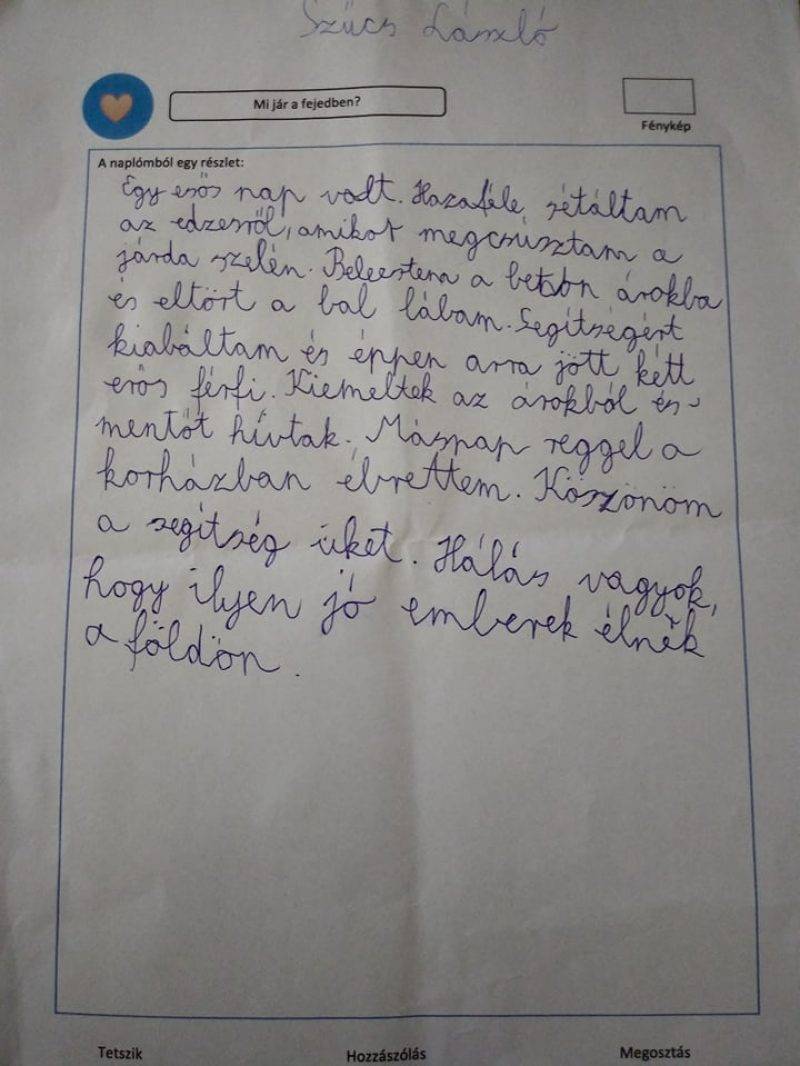 Szűcs László
Mi jár a fejedben?
Fénykép
A naplómból egy részlet:
Egy esős nap vodt. Hazafele sétáltam
az edzesről, amikor megcsúsztam a
járda szelén. Beleestem a beton árokba
és eltört a bal lábam. Segítségért
kiabáltam és éppen arra jött kétt
erős férfi. Kiemeltek az árokból és
mentőt hívtak. Másnap reggel a
korházban ébrettem. Köszönöm
a segítség üket. Hálás vagyok,
hogy ilyen jó emberek élnek
a földön.
Tetszik
Hozzászólás
Megosztás